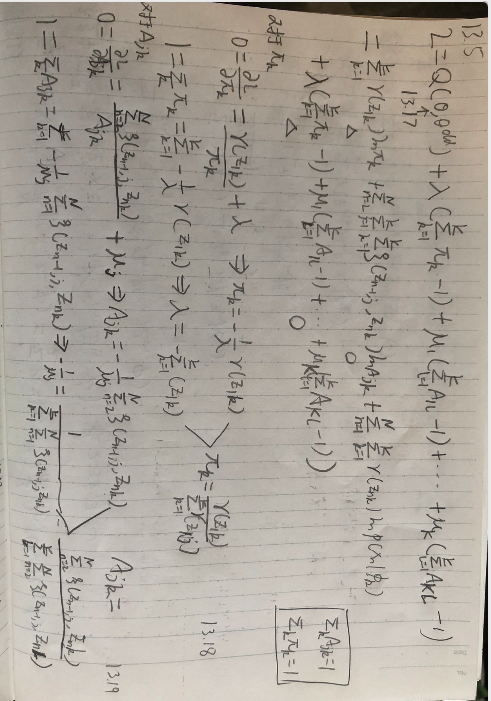 13.5
L = Q(θ, θ^old) + λ(Σ_{k=1}^{K} π_k - 1) + μ_1(Σ_{l=1}^{K} A_{1l} - 1) + ... + μ_K(Σ_{l=1}^{K} A_{Kl} - 1)
13.17
= Σ_{k=1}^{K} γ(z_{1k}) ln π_k + Σ_{n=2}^{N} Σ_{j=1}^{K} Σ_{k=1}^{K} ξ(z_{n-1,j}, z_{nk}) ln A_{jk} + Σ_{n=1}^{N} Σ_{k=1}^{K} γ(z_{nk}) ln p(x_n|φ_k)
+ λ(Σ_{k=1}^{K} π_k - 1) + μ_1(Σ_{l=1}^{K} A_{1l} - 1) + ... + μ_K(Σ_{l=1}^{K} A_{Kl} - 1))
Σ_k A_{jk} = 1
Σ_k π_k = 1
对 π_k
0 = ∂L/∂π_k = γ(z_{1k})/π_k + λ ⇒ π_k = -1/λ γ(z_{1k})
1 = Σ_{k=1}^{K} π_k = Σ_{k=1}^{K} -1/λ γ(z_{1k}) ⇒ λ = -Σ_{k=1}^{K} (z_{1k})
π_k = γ(z_{1k})/Σ_{k=1}^{K} γ(z_{1j})
13.18
对 A_{jk}
0 = ∂L/∂A_{jk} = Σ_{n=2}^{N} ξ(z_{n-1,j}, z_{nk})/A_{jk} + μ_j ⇒ A_{jk} = -1/μ_j Σ_{n=2}^{N} ξ(z_{n-1,j}, z_{nk})
1 = Σ_k A_{jk} = Σ_{k=1}^{K} -1/μ_j Σ_{n=1}^{N} ξ(z_{n-1,j}, z_{nk}) ⇒ -1/μ_j = 1/Σ_{k=1}^{K} Σ_{n=1}^{N} ξ(z_{n-1,j}, z_{nk})
A_{jk} = Σ_{n=2}^{N} ξ(z_{n-1,j}, z_{nk})/Σ_{k=1}^{K} Σ_{n=2}^{N} ξ(z_{n-1,j}, z_{nk})
13.19